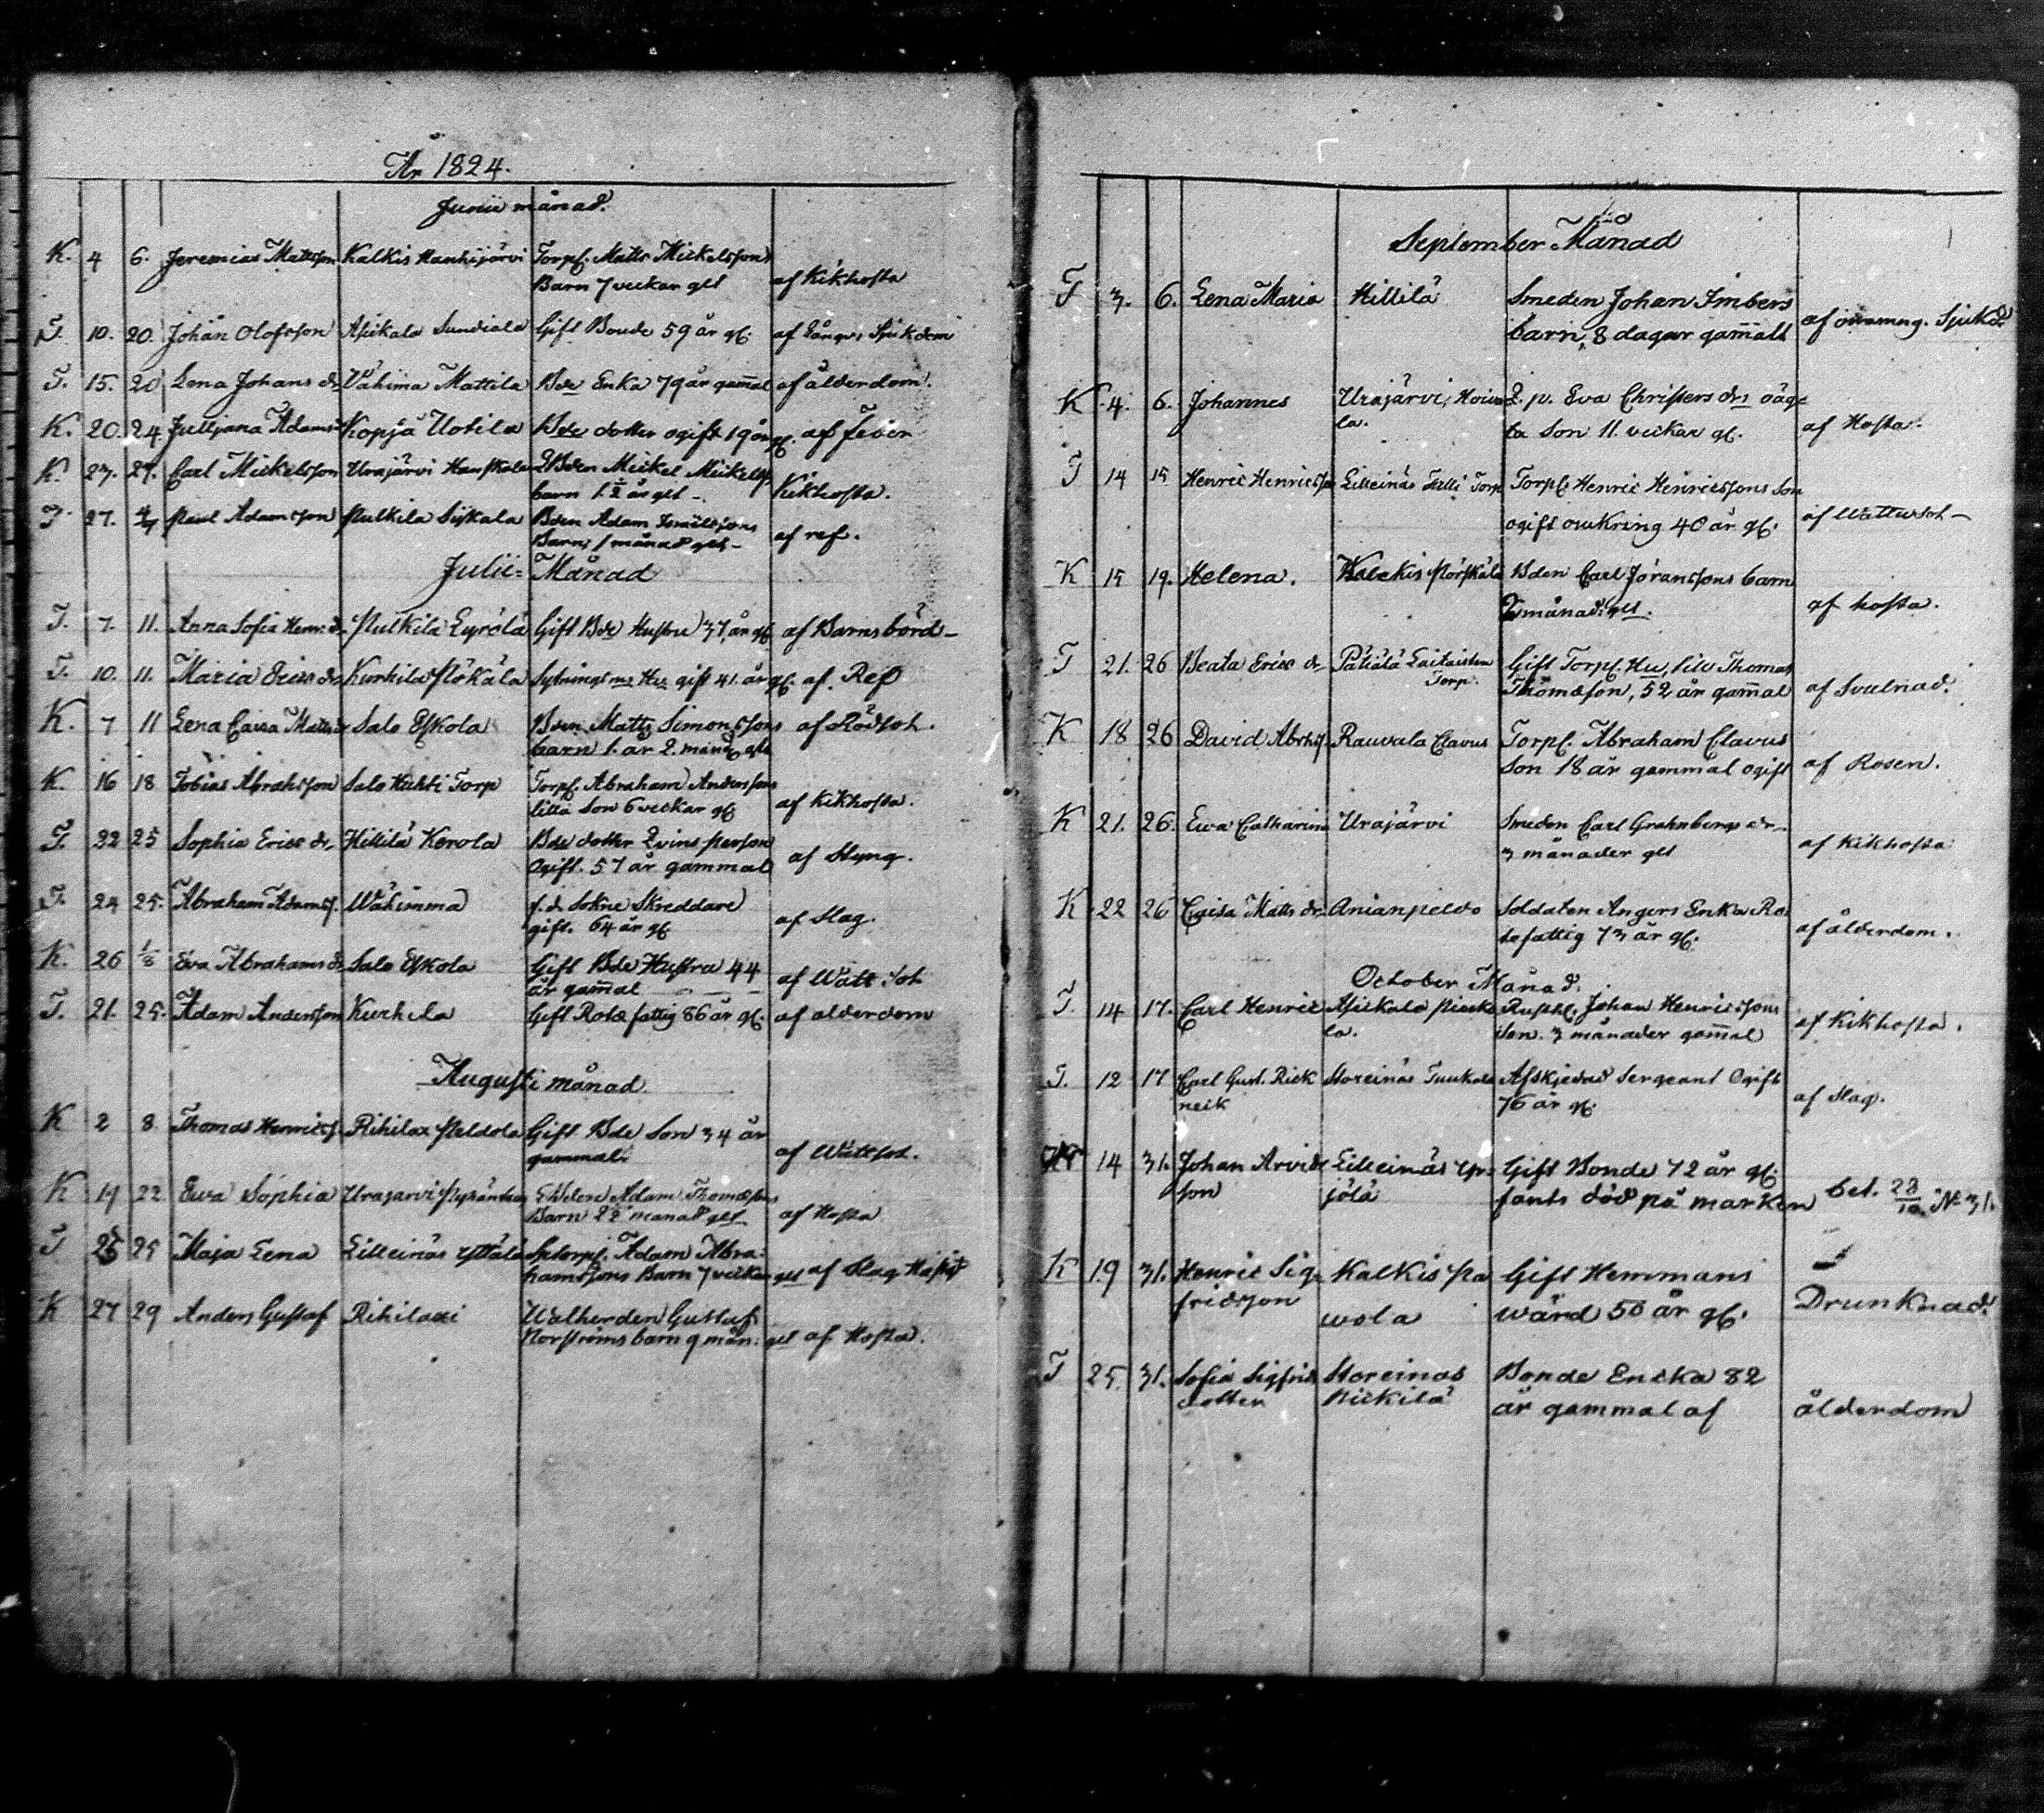 År 1824.
Junii månad.
K. 4 6. Jeremias Mattsson Kalkis Hanhijärvi Torpf. Matts Mickelssons
Barn 7 veckor glt af Kikhosta
T. 10. 20. Johan Olofsson Asikala Sundiala Gift Bonde 59 år gl. af Långv. Sjukdom
T. 15. 20 Lena Johans dr Vähima Mattila Bde Enka 79 år gamal af ålderdom.
K. 20. 24 Julljana Adams Kopja Uotila Bde dotter ogift 19 år gl. af feber
K. 23. 27. Carl Mickelsson Urajärvi Hanskala Bden Mickel Mickelss.
barn 1 1/2 år glt - Kikhosta.
T. 27. 4/7 Paul Adamsson Pulkila Sipkala Bden Adam
Barn, 1 månad glt - af ref.
Julii Månad
T. 7. 11. Anna Sofia Henr. d. Pulkila Eyrölä Gift Bde Hustru 37 år gl. af Barnsbörd -
T. 10. 11. Maria Erics dr Kurhila Pökälä Sytnings ms Hu gift 41. år gl. af Ref
K. 7 11 Lena Caisa Matts dr Salo Eskola Bden Matts Simonssons
barn 1. år 2. månd glt af Rödsot.
K. 16 18 Tobias Abrahsson Salo Huhti Torp Torpf. Abraham Anderssons
lilla Son 6 veckor gl. af Kikhosta.
T. 22 25 Sophia Erics dr Hillilä Kerola Bde dotter Qvins Person
Ogift. 57 år gammal af Styng.
T. 24 25. Abraham Adamss. Wähimmä f.d. Sokne Skreddare
gift. 64 år gl. af Slag.
K. 26 1/8 Eva Abrahams dr Salo Eskola Gift Bde Hustru 44
år gamal af Watt Sot
T. 21. 25. Adam Andersson Kurhela Gift Rote fattig 86 år gl. af alderdom
Augusti månad.
K 2 8 Thomas Henricss. Rihilax Peldola Gift Bde Son 34 år
gammal. af Wattsot.
K 14 22 Ewa Sophia Urajarvi Adam Thomassons
Barn 2 1/2 manad glt af Hosta
T 25 29 Maja Lena Lilleinäs Yttälä Sptorpf. Adam Abra-
hamssons Barn 7 veckor glt af Slag
K 27 29 Anders Gustaf Rihilaxi Gustaf
Norströms barn 9 mån: glt af Hosta.
September Månad
T 3. 6. Lena Maria Hillilä Smeden Johan Imbers
barn, 8 dagar gamalt af Sjukd.
K 4. 6. Johannes Urajärvi, Hoiva- Q. p. Eva Christers drs oäg-
la. ta Son 11. veckor gl. af Hosta.
T 14 19 Henric Henricsson Lilleinäs Talli Torp Torpf. Henric Henricssons Son
ogift omkring 40 år gl. af Wattusot -
K 15 19. Helena. Kalckis Pörskälä Bden Carl Göranssons barn
2 månad: glt. af hosta.
T 21. 26 Beata Erics dr Pätiälä Laitaisten Gift Torpf. Hu, lilu Thomas
Torp. Thomasson, 52 år gamal af Svulnad.
K 18 26 David Abrhss. Rauvala Clavus Torpf. Abraham Clavus
Son 18 år gammal ogift af Rosen.
K 21. 26. Ewa Catharina Urajärvi Smeden Carl Grahnbergs dr
3 månader glt af Kikhosta
K 22 26 Caisa Matts dr. Anianpeldo Soldaten Angers Enka Ro-
tefattig 73 år gl. af ålderdom.
October Månad.
T. 14 17. Carl Henric Asikala Pieska- Rusthl. Johan Henricssons
la. Son. 3 månader gamal af Kikhosta.
T. 12 17 Carl Gust. Rick Storeinäs Tuukala Afskjedad Sergeant Ogift
neik 76 år gl. af Slag.
14 31. Johan Arvids Lilleinäs Yr- Gift Bonde 72 år gl.
son jölä fants död på marken bet. 28/10 No 31.
K 19 31. Henric Sig- Kalkis Pa Gift Hemmans
fridsson wola wärd 50 år gl. Drunknad.
T 25. 31. Sofia Sigfrids Storeinäs Bonde Encka 82
dotter Nickilä år gammal af ålderdom